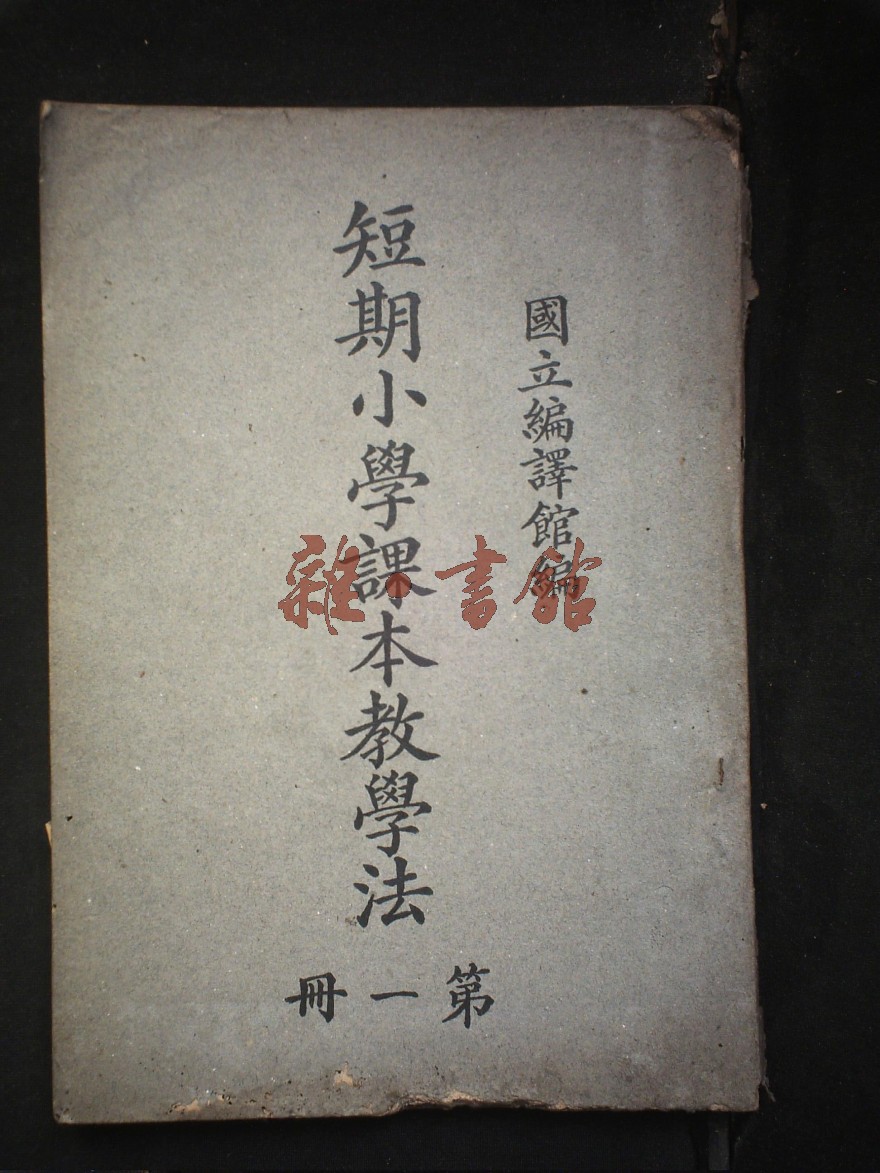 國立編譯館編
短期小學課本教學法
第一冊
雜·書館